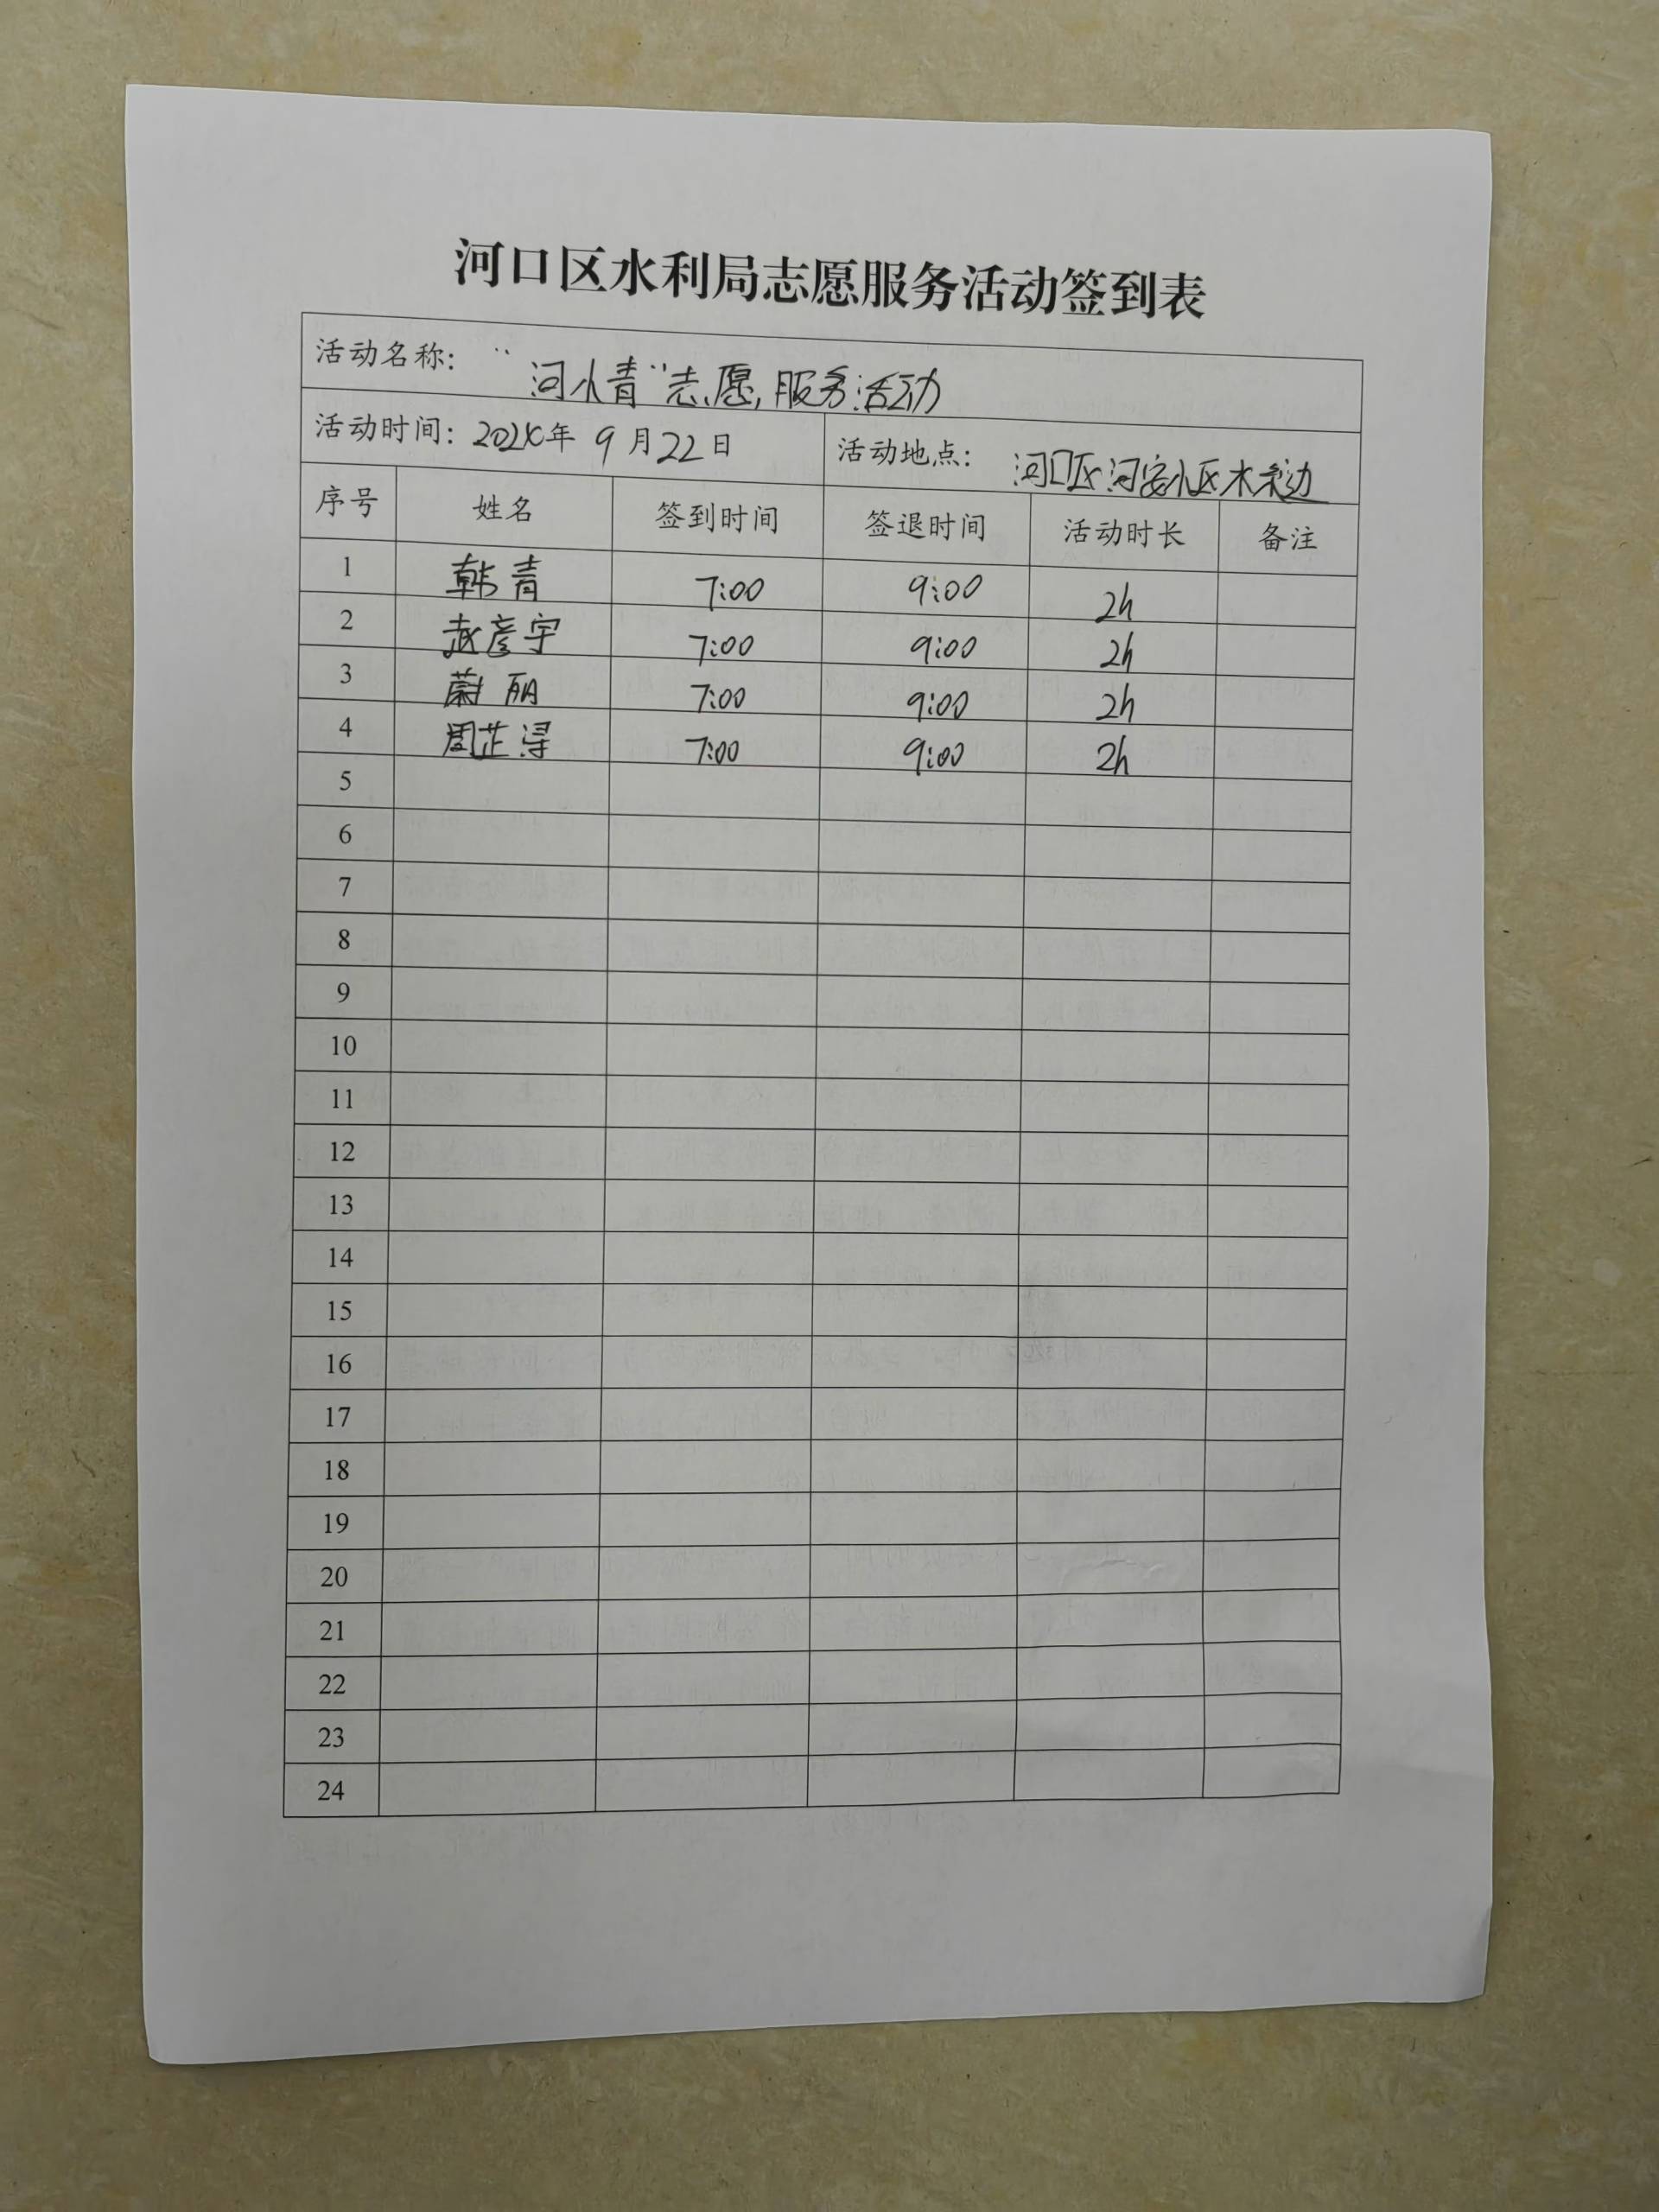 河口区水利局志愿服务活动签到表
活动名称： “河小青”志愿服务活动
活动时间：2024年 9月22日 活动地点： 河口区河安小区水系边
序号 姓名 签到时间 签退时间 活动时长 备注
1 韩青 7:00 9:00 2h
2 赵彦宇 7:00 9:00 2h
3 蔚丽 7:00 9:00 2h
4 周芷浔 7:00 9:00 2h
5
6
7
8
9
10
11
12
13
14
15
16
17
18
19
20
21
22
23
24